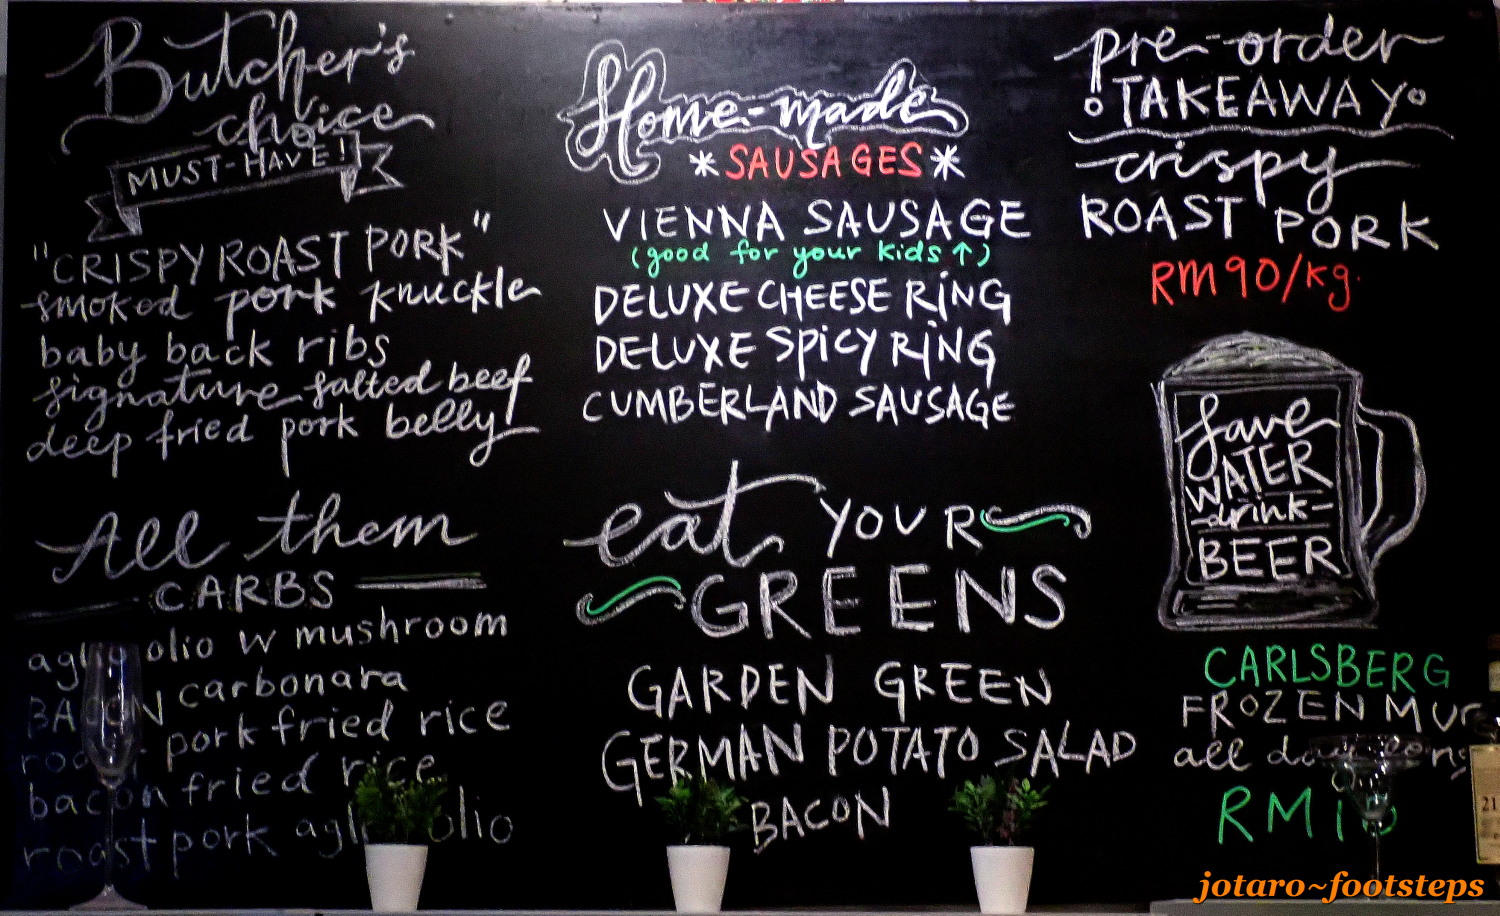 Butcher's
choice
MUST-HAVE!
"CRISPY ROAST PORK"
smoked pork knuckle
baby back ribs
signature salted beef
deep fried pork belly
All them
CARBS
aglio olio w mushroom
BACON carbonara
roast pork fried rice
bacon fried rice
roast pork aglio olio
Home-made
*SAUSAGES*
VIENNA SAUSAGE
(good for your kids↑)
DELUXE CHEESE RiNG
DELUXE SPiCY RiNG
CUMBERLAND SAUSAGE
eat YOUR
GREENS
GARDEN GREEN
GERMAN POTATO SALAD
BACON
pre-order
TAKEAWAY
crispy
ROAST PORK
RM90/kg.
Save
WATER
-drink-
BEER
CARLSBERG
FROZEN MUG
all day long
RM
21
jotaro~footsteps